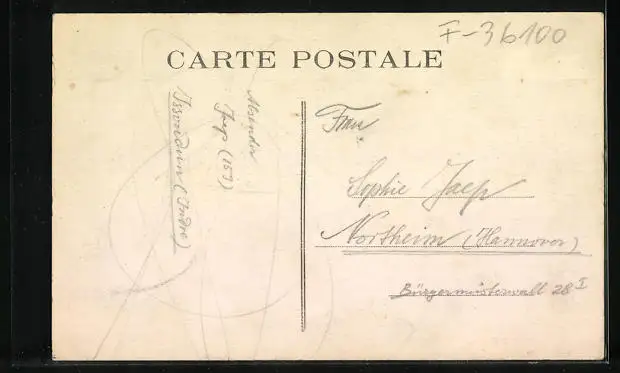 F-36100
CARTE POSTALE
Absender
Jaep (153)
Issoudun (Indre)
Frau
Sophie Jaep
Northeim (Hannover)
Bürgermeisterwall 28 I